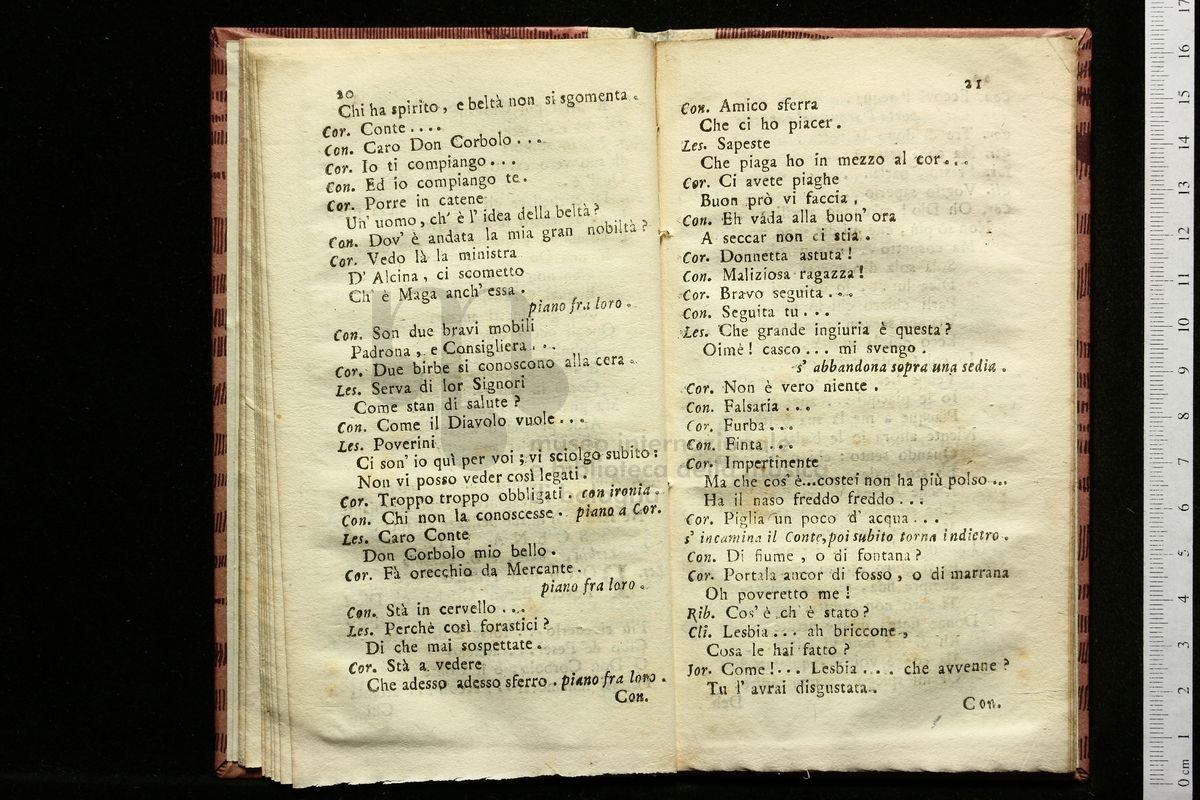 20
Chi ha spirito, e beltà non si sgomenta.
Cor. Conte....
Con. Caro Don Corbolo...
Cor. Io ti compiango...
Con. Ed io compiango te.
Cor. Porre in catene
Un' uomo, ch' è l' idea della beltà?
Con. Dov' è andata la mia gran nobiltà?
Cor. Vedo là la ministra
D' Alcina, ci scometto
Ch' è Maga anch' essa.
piano fra loro.
Con. Son due bravi mobili
Padrona, e Consigliera...
Cor. Due birbe si conoscono alla cera.
Les. Serva di lor Signori
Come stan di salute?
Con. Come il Diavolo vuole...
Les. Poverini
Ci son' io quì per voi; vi sciolgo subito:
Non vi posso veder così legati.
Cor. Troppo troppo obbligati. con ironia.
Con. Chi non la conoscesse. piano a Cor.
Les. Caro Conte
Don Corbolo mio bello.
Cor. Fà orecchio da Mercante.
piano fra loro.
Con. Stà in cervello...
Les. Perchè così forastici?
Di che mai sospettate.
Cor. Stà a vedere
Che adesso adesso sferro. piano fra loro.
Con.
21
Con. Amico sferra
Che ci ho piacer.
Les. Sapeste
Che piaga ho in mezzo al cor...
Cor. Ci avete piaghe
Buon prò vi faccia.
Con. Eh vada alla buon' ora
A seccar non ci stia.
Cor. Donnetta astuta!
Con. Maliziosa ragazza!
Cor. Bravo seguita...
Con. Seguita tu...
Les. Che grande ingiuria è questa?
Oimè! casco... mi svengo.
s' abbandona sopra una sedia.
Cor. Non è vero niente.
Con. Falsaria...
Cor. Furba...
Con. Finta...
Cor. Impertinente
Ma che cos' è...costei non ha più polso...
Ha il naso freddo freddo...
Cor. Piglia un poco d' acqua...
s' incamina il Conte, poi subito torna indietro.
Con. Di fiume, o di fontana?
Cor. Portala ancor di fosso, o di marrana
Oh poveretto me!
Rib. Cos' è ch' è stato?
Cli. Lesbia... ah briccone,
Cosa le hai fatto?
Jor. Come!... Lesbia.... che avvenne?
Tu l' avrai disgustata.
Con.
museo internazionale
biblioteca della musica
0 cm 1 2 3 4 5 6 7 8 9 10 11 12 13 14 15 16 17